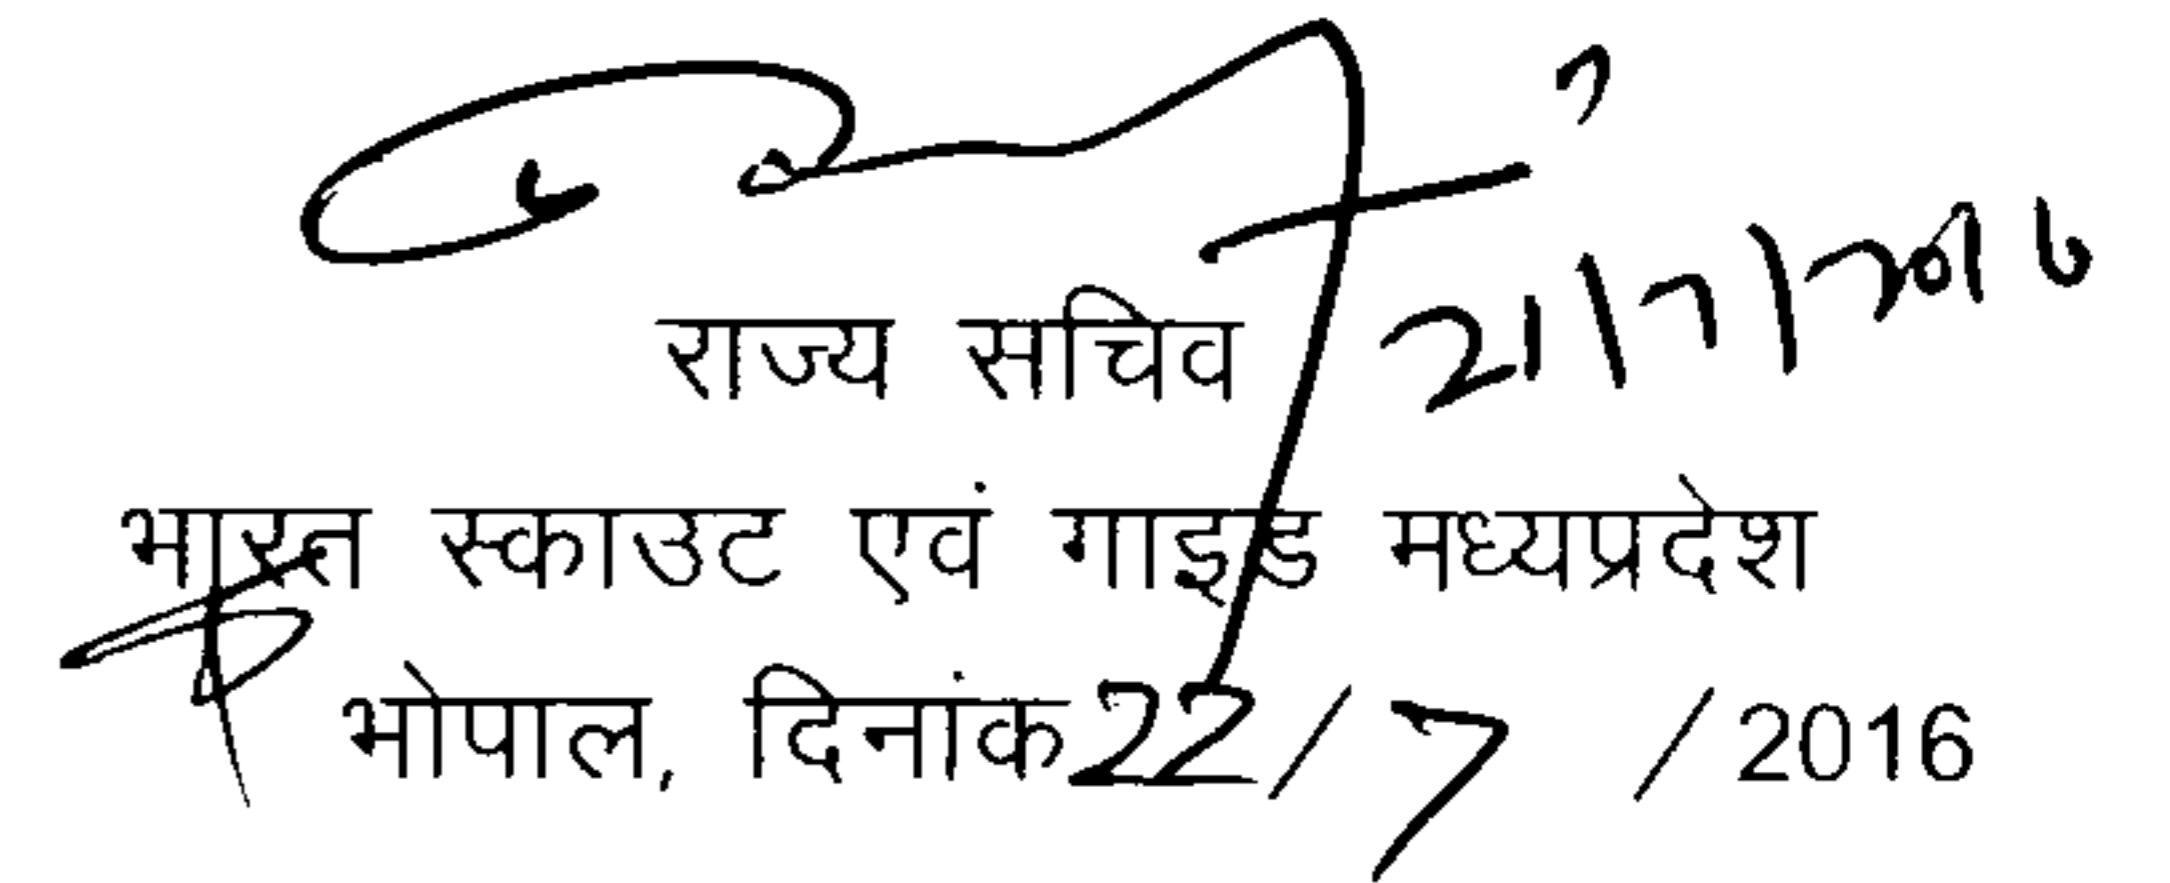 राज्य सचिव 21/7/2016
भारत स्काउट एवं गाइड मध्यप्रदेश
भोपाल, दिनांक 22/7/2016